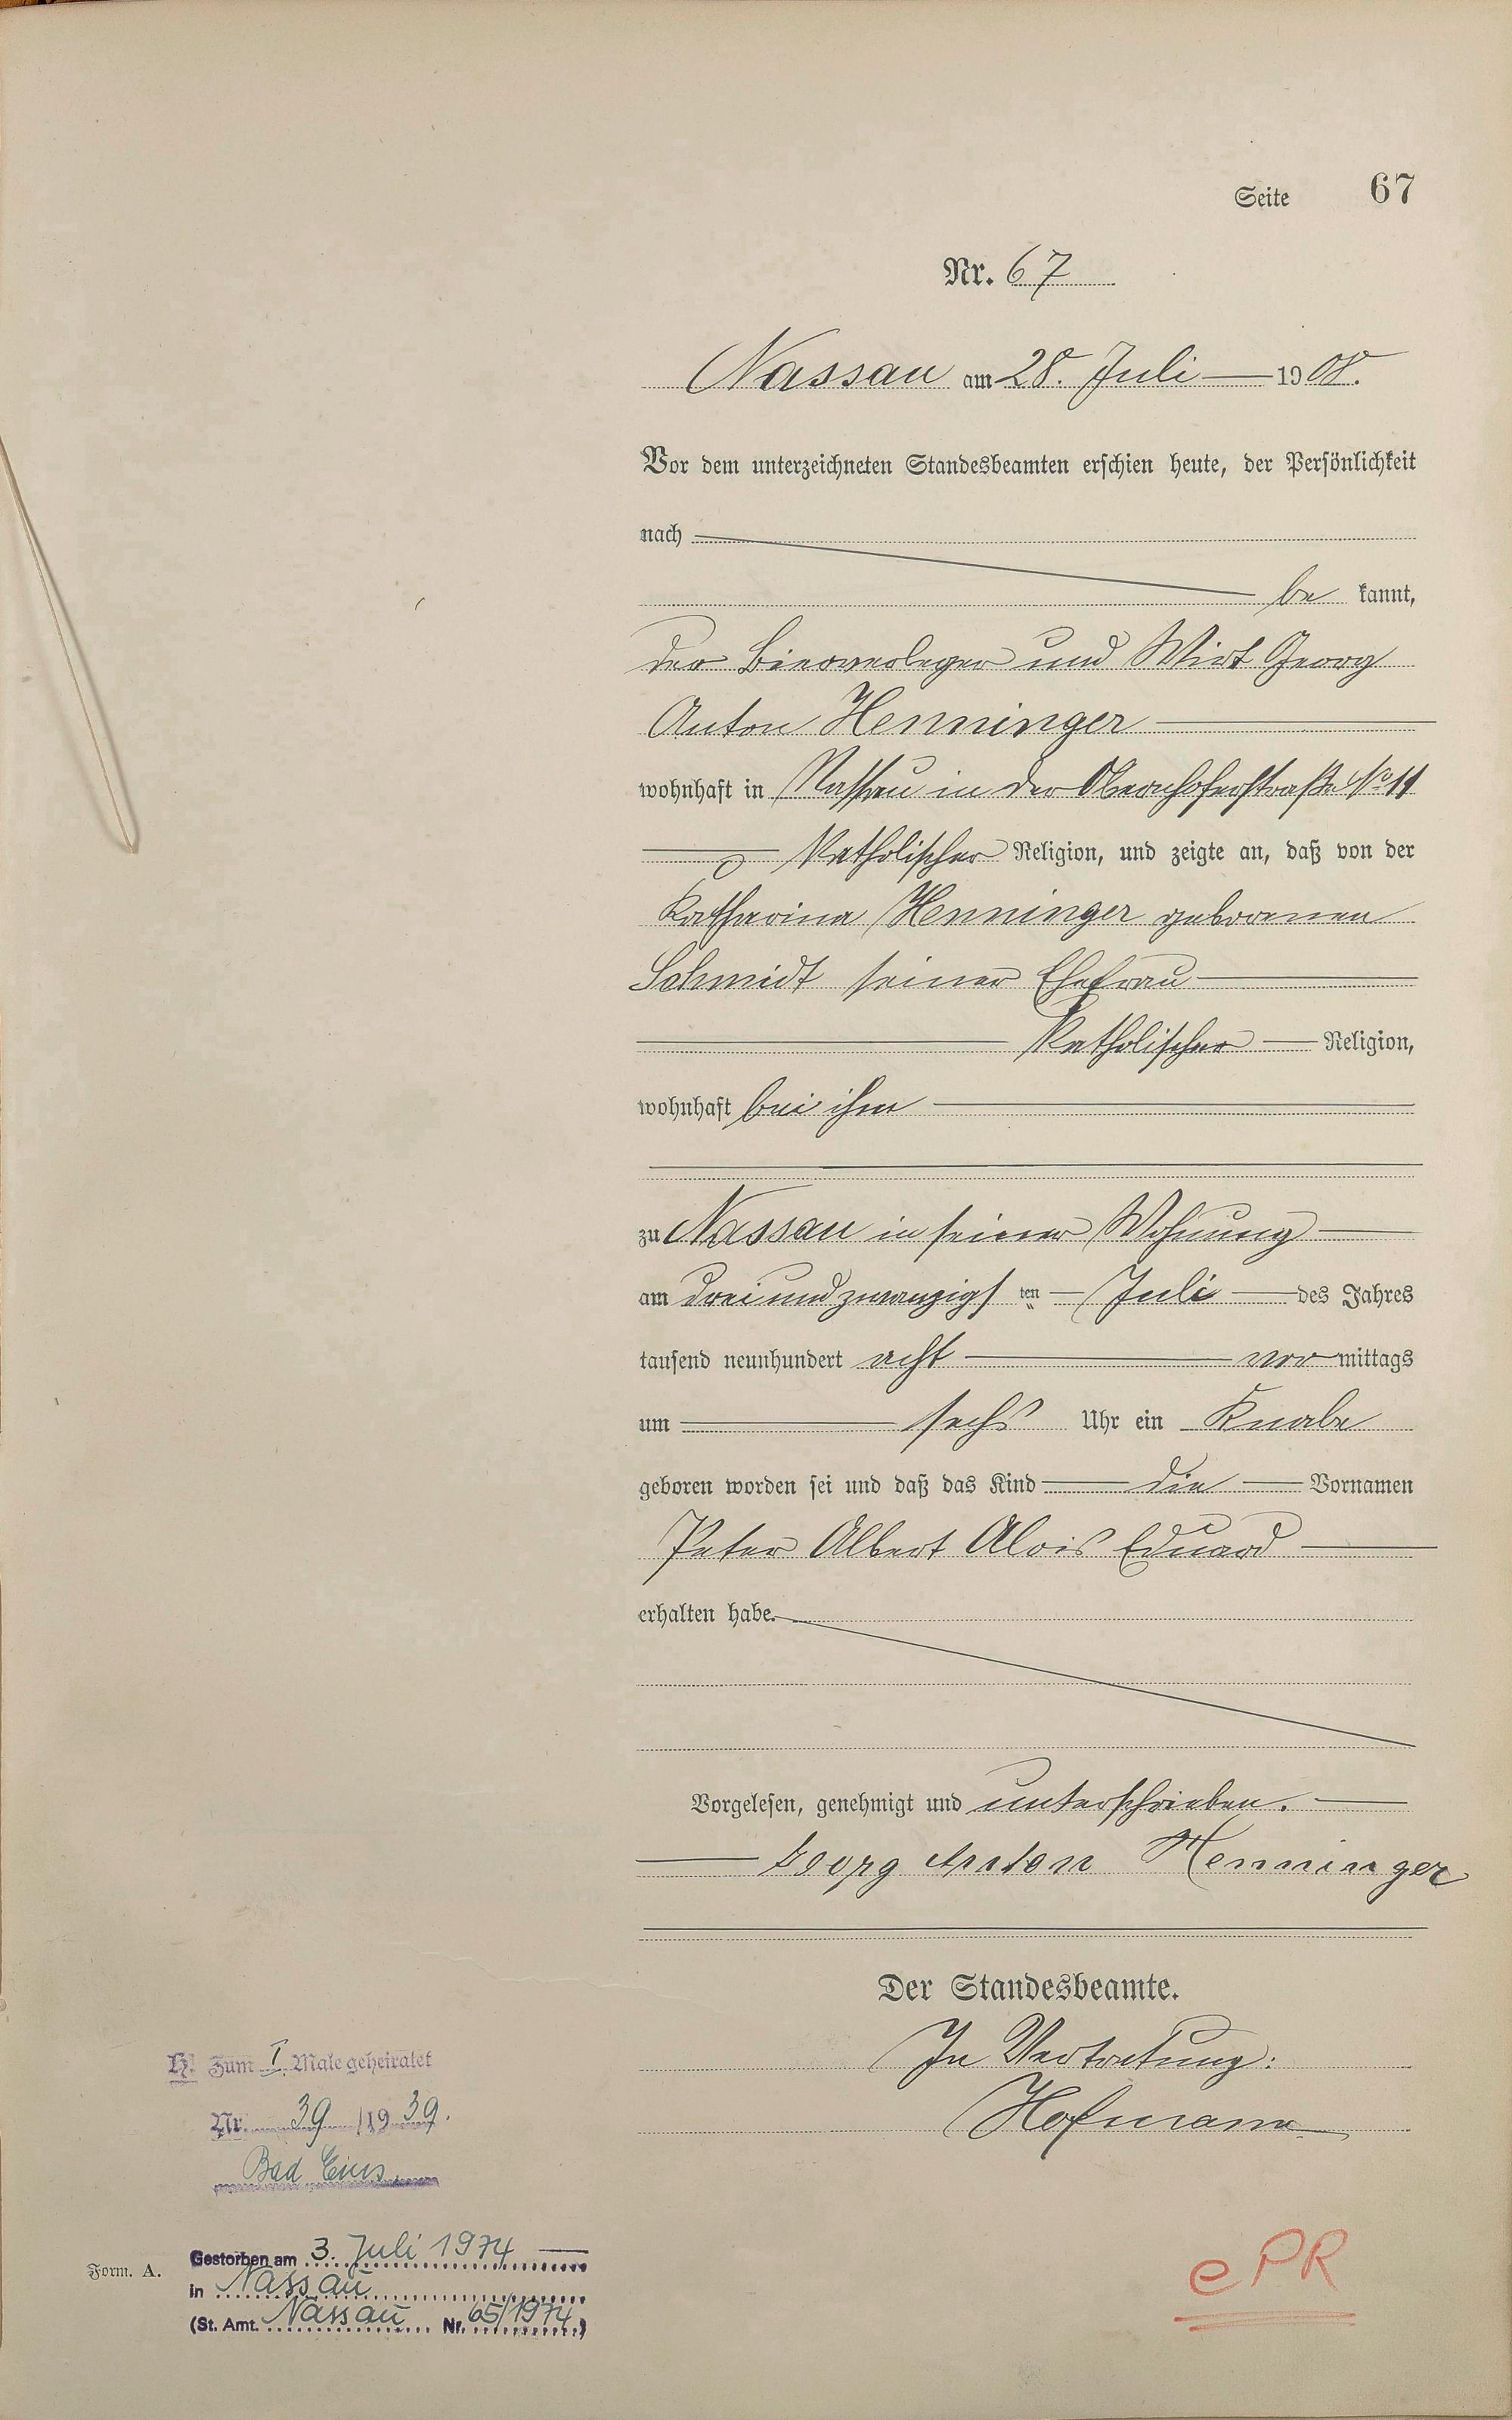 Seite 67
Nr. 67
Nassau am 28. Juli 1908.
Vor dem unterzeichneten Standesbeamten erschien heute, der Persönlichkeit
nach
be kannt,
der Bierverleger und Wirt Georg
Anton Henninger
wohnhaft in Nassau in der Obernhoferstraße No 11
katholischer Religion, und zeigte an, daß von der
Katharina Henninger geborenen
Schmidt seiner Ehefrau
katholischer Religion,
wohnhaft bei ihm
zu Nassau in seiner Wohnung
am dreiundzwanzigsten Juli des Jahres
tausend neunhundert acht vor mittags
um sechs Uhr ein Knabe
geboren worden sei und daß das Kind die Vornamen
Peter Albert Alois Eduard
erhalten habe.
Vorgelesen, genehmigt und unterschrieben.
Georg Anton Henninger
Der Standesbeamte.
In Vertretung:
Hofmann
H. Zum I. Male geheiratet
Nr. 39 /1939.
Bad Ems
Form. A.
Gestorben am 3. Juli 1974
in Nassau
(St. Amt. Nassau Nr. 65/1974)
ePR